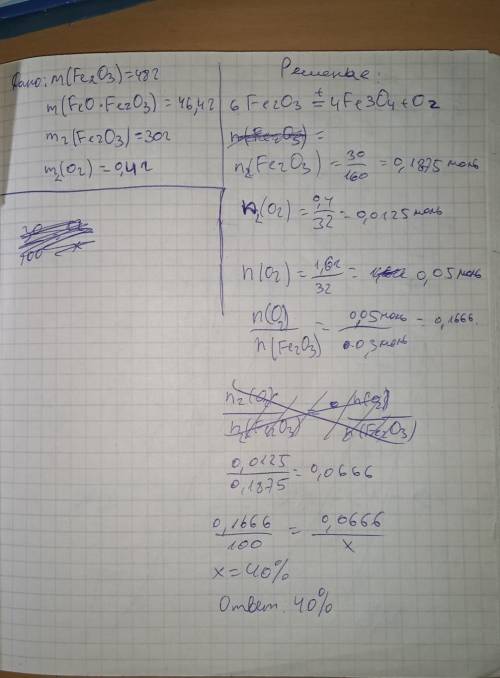 Дано: m(Fe2O3)=48г
m(FeO·Fe2O3)=46,4г
m2(Fe2O3)=30г
m2(O2)=0,4г
Решение:
6Fe2O3 t= 4Fe3O4+O2
n(Fe2O3) =
n2(Fe2O3) = 30/160 = 0,1875 моль
n2(O2) = 0,4/32 = 0,0125 моль
n(O2) = 1,6г/32 = 0,05 моль
n(O2)/n(Fe2O3) = 0,05 моль/0,3 моль = 0,1666.
n2(O2)/n2(Fe2O3) = n(O2)/n(Fe2O3)
0,0125/0,1875 = 0,0666
0,1666/100 = 0,0666/x
x = 40%
Ответ. 40%